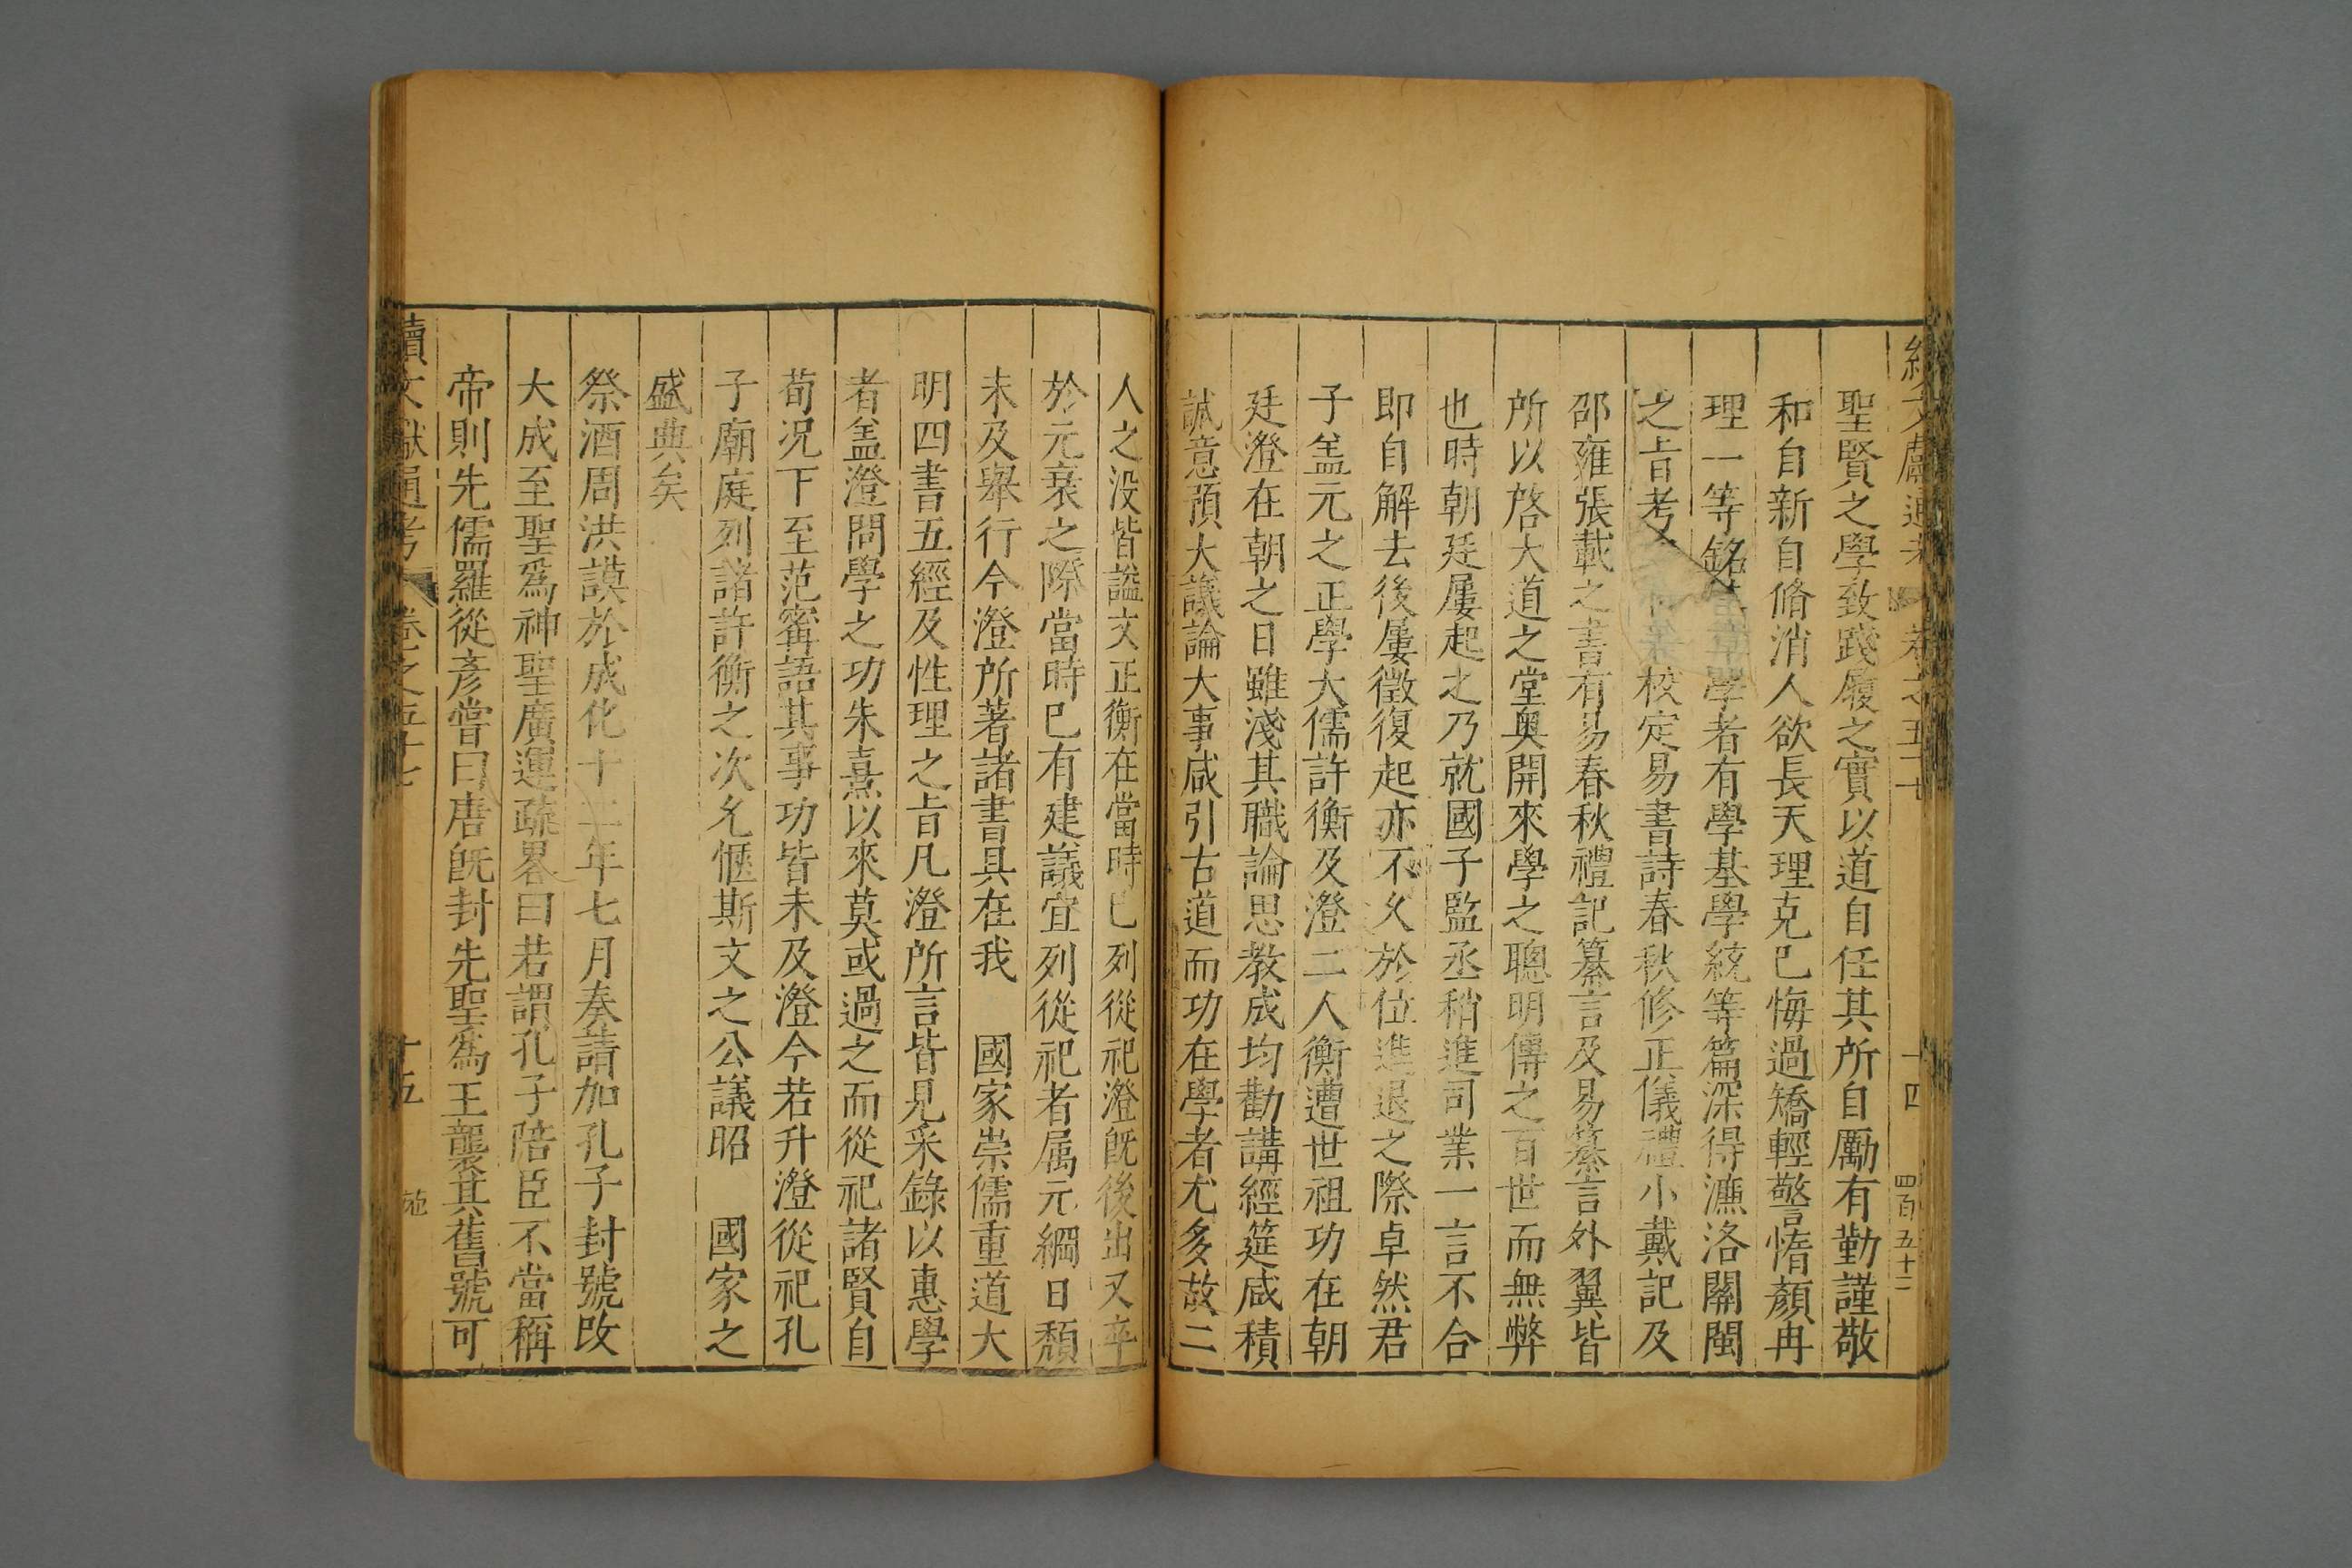 續文獻通考 卷之五十七 十四 四百五十二
聖賢之學致踐履之實以道自任其所自勵有勤謹敬
和自新自脩消人欲長天理克已悔過矯輕警惰顏冉
理一等銘 學者有學基學統等篇深得濂洛關閩
之㫖考 校定易書詩春秋修正儀禮小戴記及
邵雍張載之書有易春秋禮記纂言及易纂言外翼皆
所以啓大道之堂奥開來學之聰明傳之百世而無弊
也時朝廷屢起之乃就國子監丞稍進司業一言不合
即自解去後屢徵復起亦不乆於位進退之際卓然君
子盖元之正學大儒許衡及澄二人衡遭世祖功在朝
廷澄在朝之日雖淺其職論思教成均勸講經筵咸積
誠意預大議論大事咸引古道而功在學者尤多故二
人之没皆謚文正衡在當時已列從祀澄旣後出又卒
於元衰之際當時已有建議宜列從祀者属元綱日頽
未及舉行今澄所著諸書具在我 國家崇儒重道大
明四書五經及性理之㫖凡澄所言皆見采錄以惠學
者盖澄問學之功朱熹以來莫或過之而從祀諸賢自
荀况下至范甯語其事功皆未及澄今若升澄從祀孔
子廟庭列諸許衡之次允愜斯文之公議昭 國家之
盛典矣
祭酒周洪謨於成化十二年七月奏請加孔子封號改
大成至聖爲神聖廣運疏畧曰若謂孔子陪臣不當稱
帝則先儒羅從彥嘗曰唐旣封先聖爲王襲其舊號可
續文獻通考 卷之五十七 十五